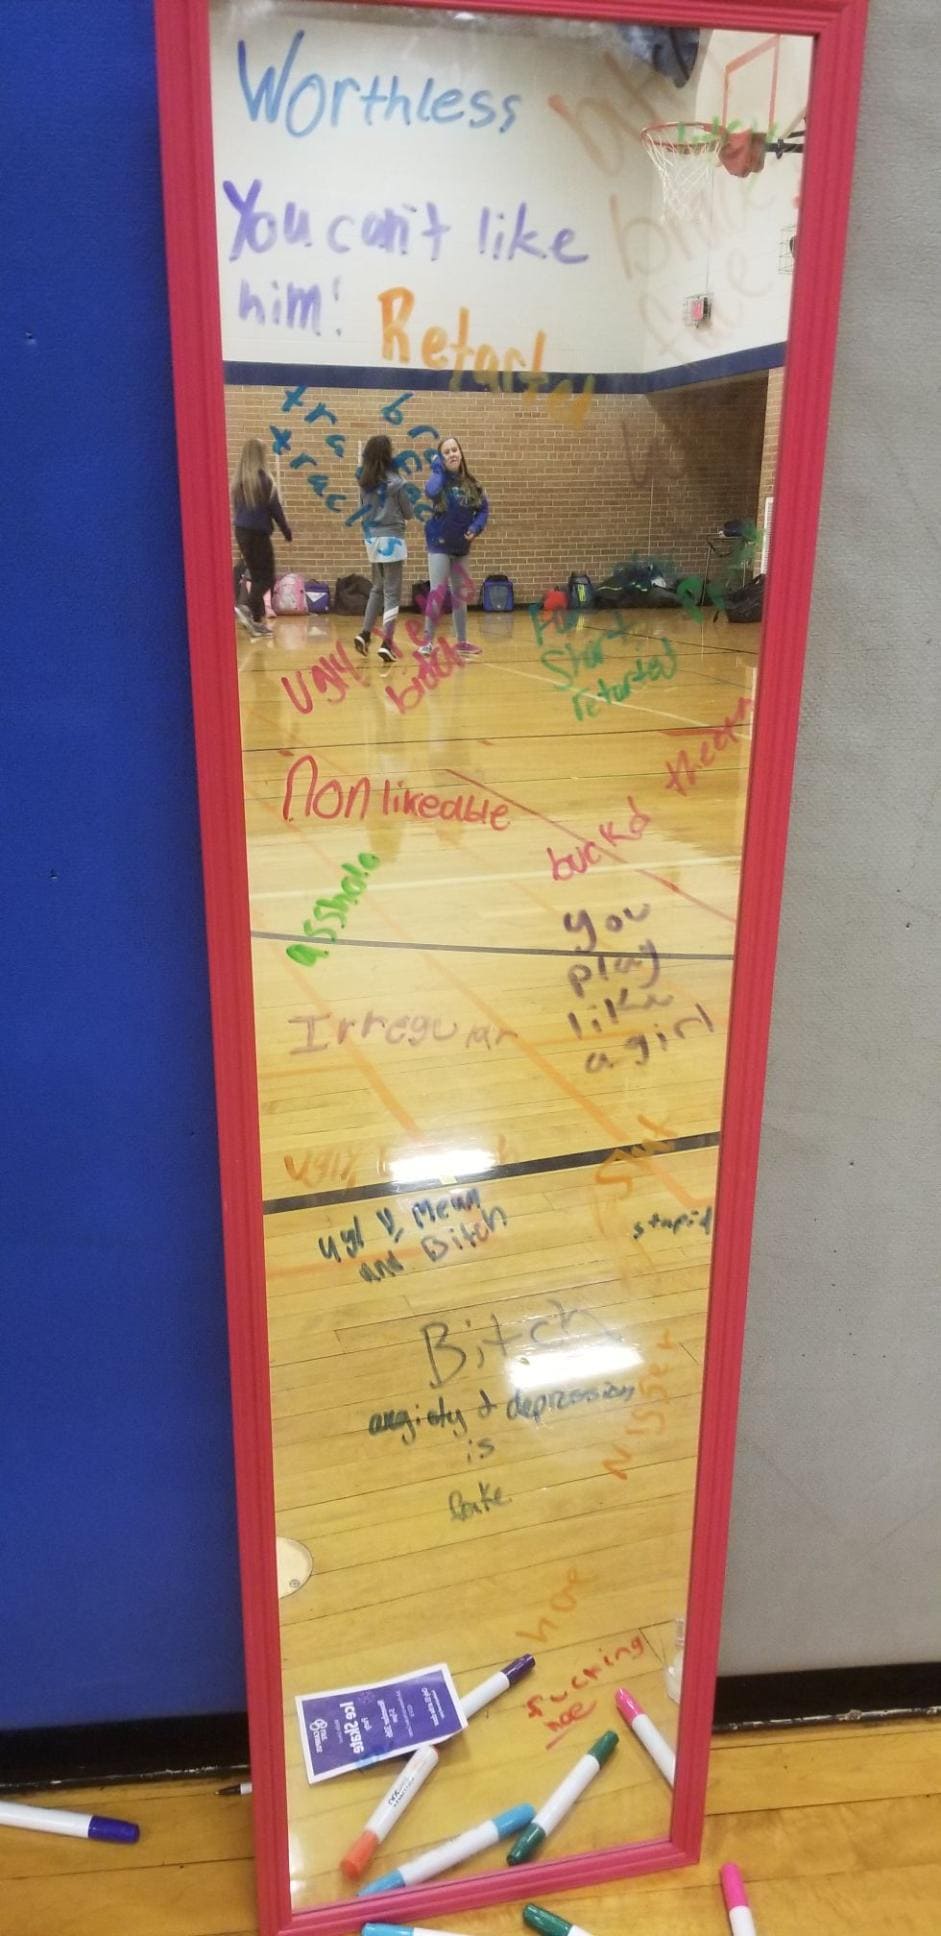 Worthless
You can't like
him!
Retarted
train
tracks
brace
face
Ugly
bitch
Start
retarted
Nonlikeable
theeth
buckd
asshole
you
play
like
a girl
Irregular
ugly
Slut
ugly, Mean
and Bitch
stupid
Bitch
angiety & depression
is
fake
Nigger
hoe
fucking
hoe
Ice Skate